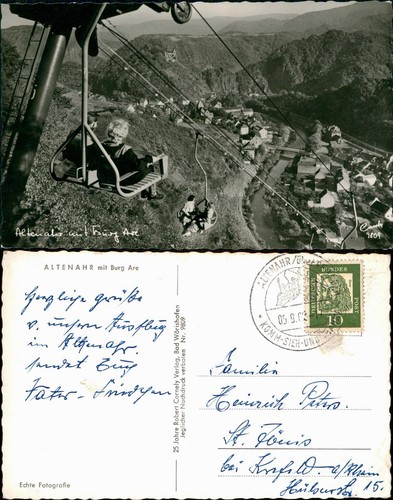 Altenahr mit Burg Are
9809
ALTENAHR mit Burg Are
Herzliche Grüße
v. unserm Ausflug
in Altenahr.
sendet Euch
Vater
Echte Fotografie
25 Jahre Robert Cornely Verlag, Bad Wörishofen
Jeglicher Nachdruck verboten Nr. 9809
ALTENAHR
05.9.6
KOMM-SIEH-UND
DEUTSCHE BUNDESPOST
10
Familie
Heinrich Peters.
St. Tönis
bei Krefeld a/Rhein
15.